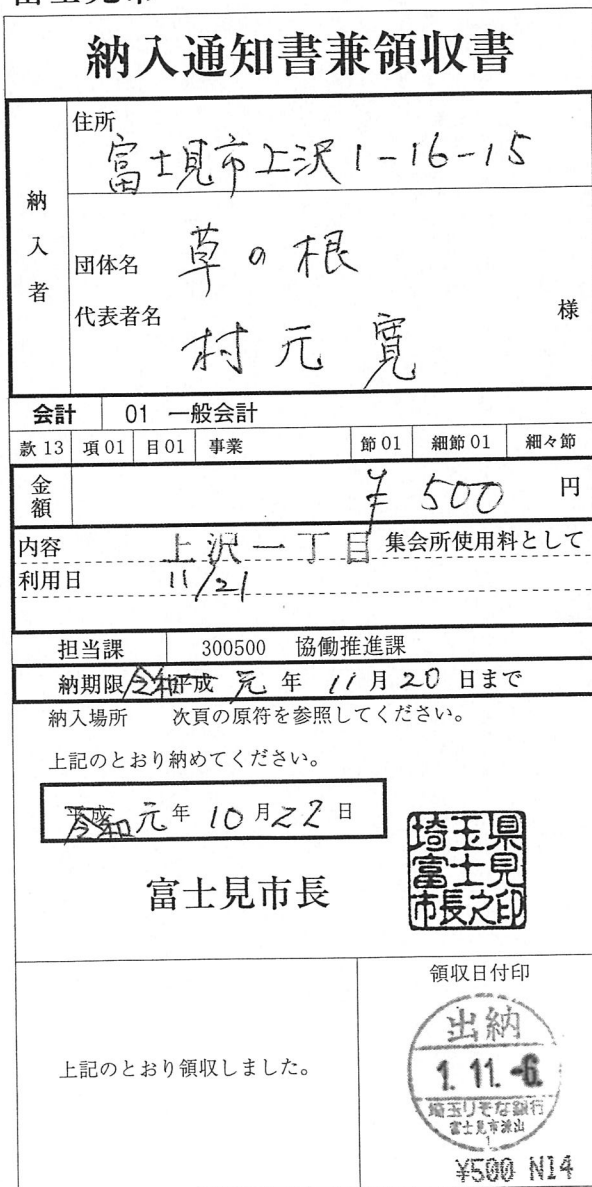 納入通知書兼領収書
納入者
住所
富士見市上沢1-16-15
団体名 草の根
代表者名 村元寛 様
会計 01 一般会計
款13 項01 目01 事業 節01 細節01 細々節
金額 ¥500 円
内容 上沢一丁目 集会所使用料として
利用日 11/21
担当課 300500 協働推進課
納期限 令和 平成 元年 11月20日まで
納入場所 次頁の原符を参照してください。
上記のとおり納めてください。
平成
令和 元年 10月22日
富士見市長
埼玉県富士見市長之印
領収日付印
上記のとおり領収しました。
出納
1.11.-6.
埼玉りそな銀行
富士見市派出
1
¥500 N14